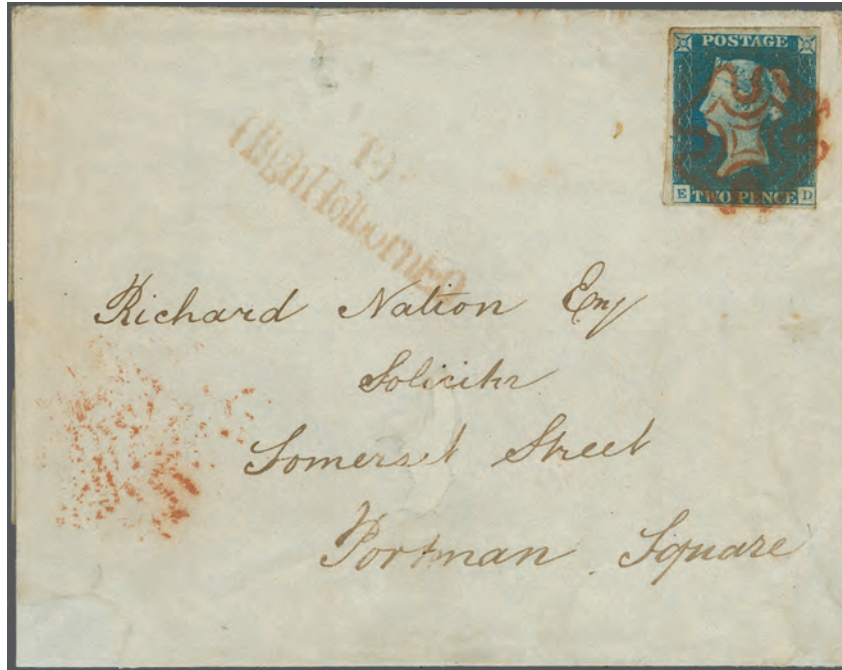 POSTAGE
TWO PENCE
E D
High Holborn
Richard Nation Esq
Solicitor
Somerset Street
Portman Square